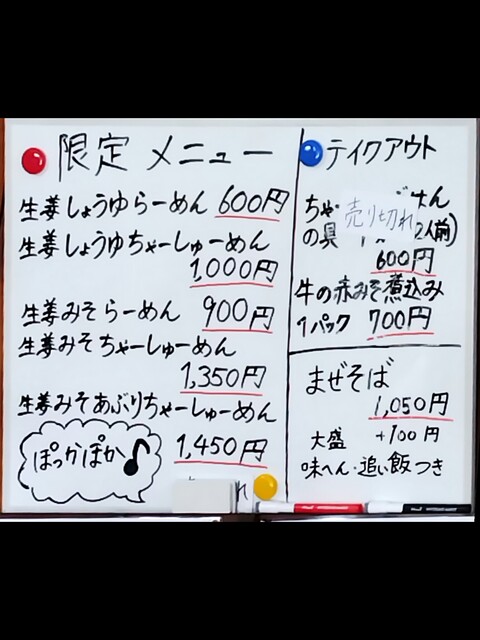 限定メニュー
生姜しょうゆらーめん 600円
生姜しょうゆちゃーしゅーめん
1,000円
生姜みそらーめん 900円
生姜みそちゃーしゅーめん
1,350円
生姜みそあぶりちゃーしゅーめん
1,450円
ぽっかぽか♪
テイクアウト
売り切れ
の具
2人前)
600円
牛の赤みそ煮込み
1パック 700円
まぜそば
1,050円
大盛 +100円
味へん・追い飯つき